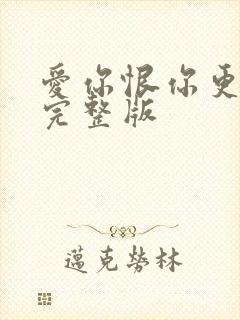 愛你恨你更
完整版
邁克勞林